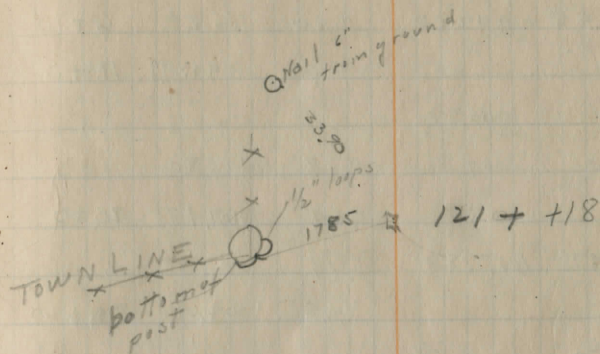 Nail 6"
from ground
33.90
1/2" loops
1785
121 + +18
TOWN LINE
bottom of
post